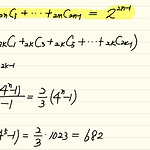 ₂ₙC₃ + ⋯ + ₂ₙC₂ₙ₋₁ = 2²ⁿ⁻¹
ₖC₁ + ₂ₖC₃ + ₂ₖC₅ + ⋯ + ₂ₖC₂ₖ₋₁)
2k-1
4ⁿ-1) / -1 = 2/3 (4ⁿ-1)
⁵-1) = 2/3 · 1023 = 682